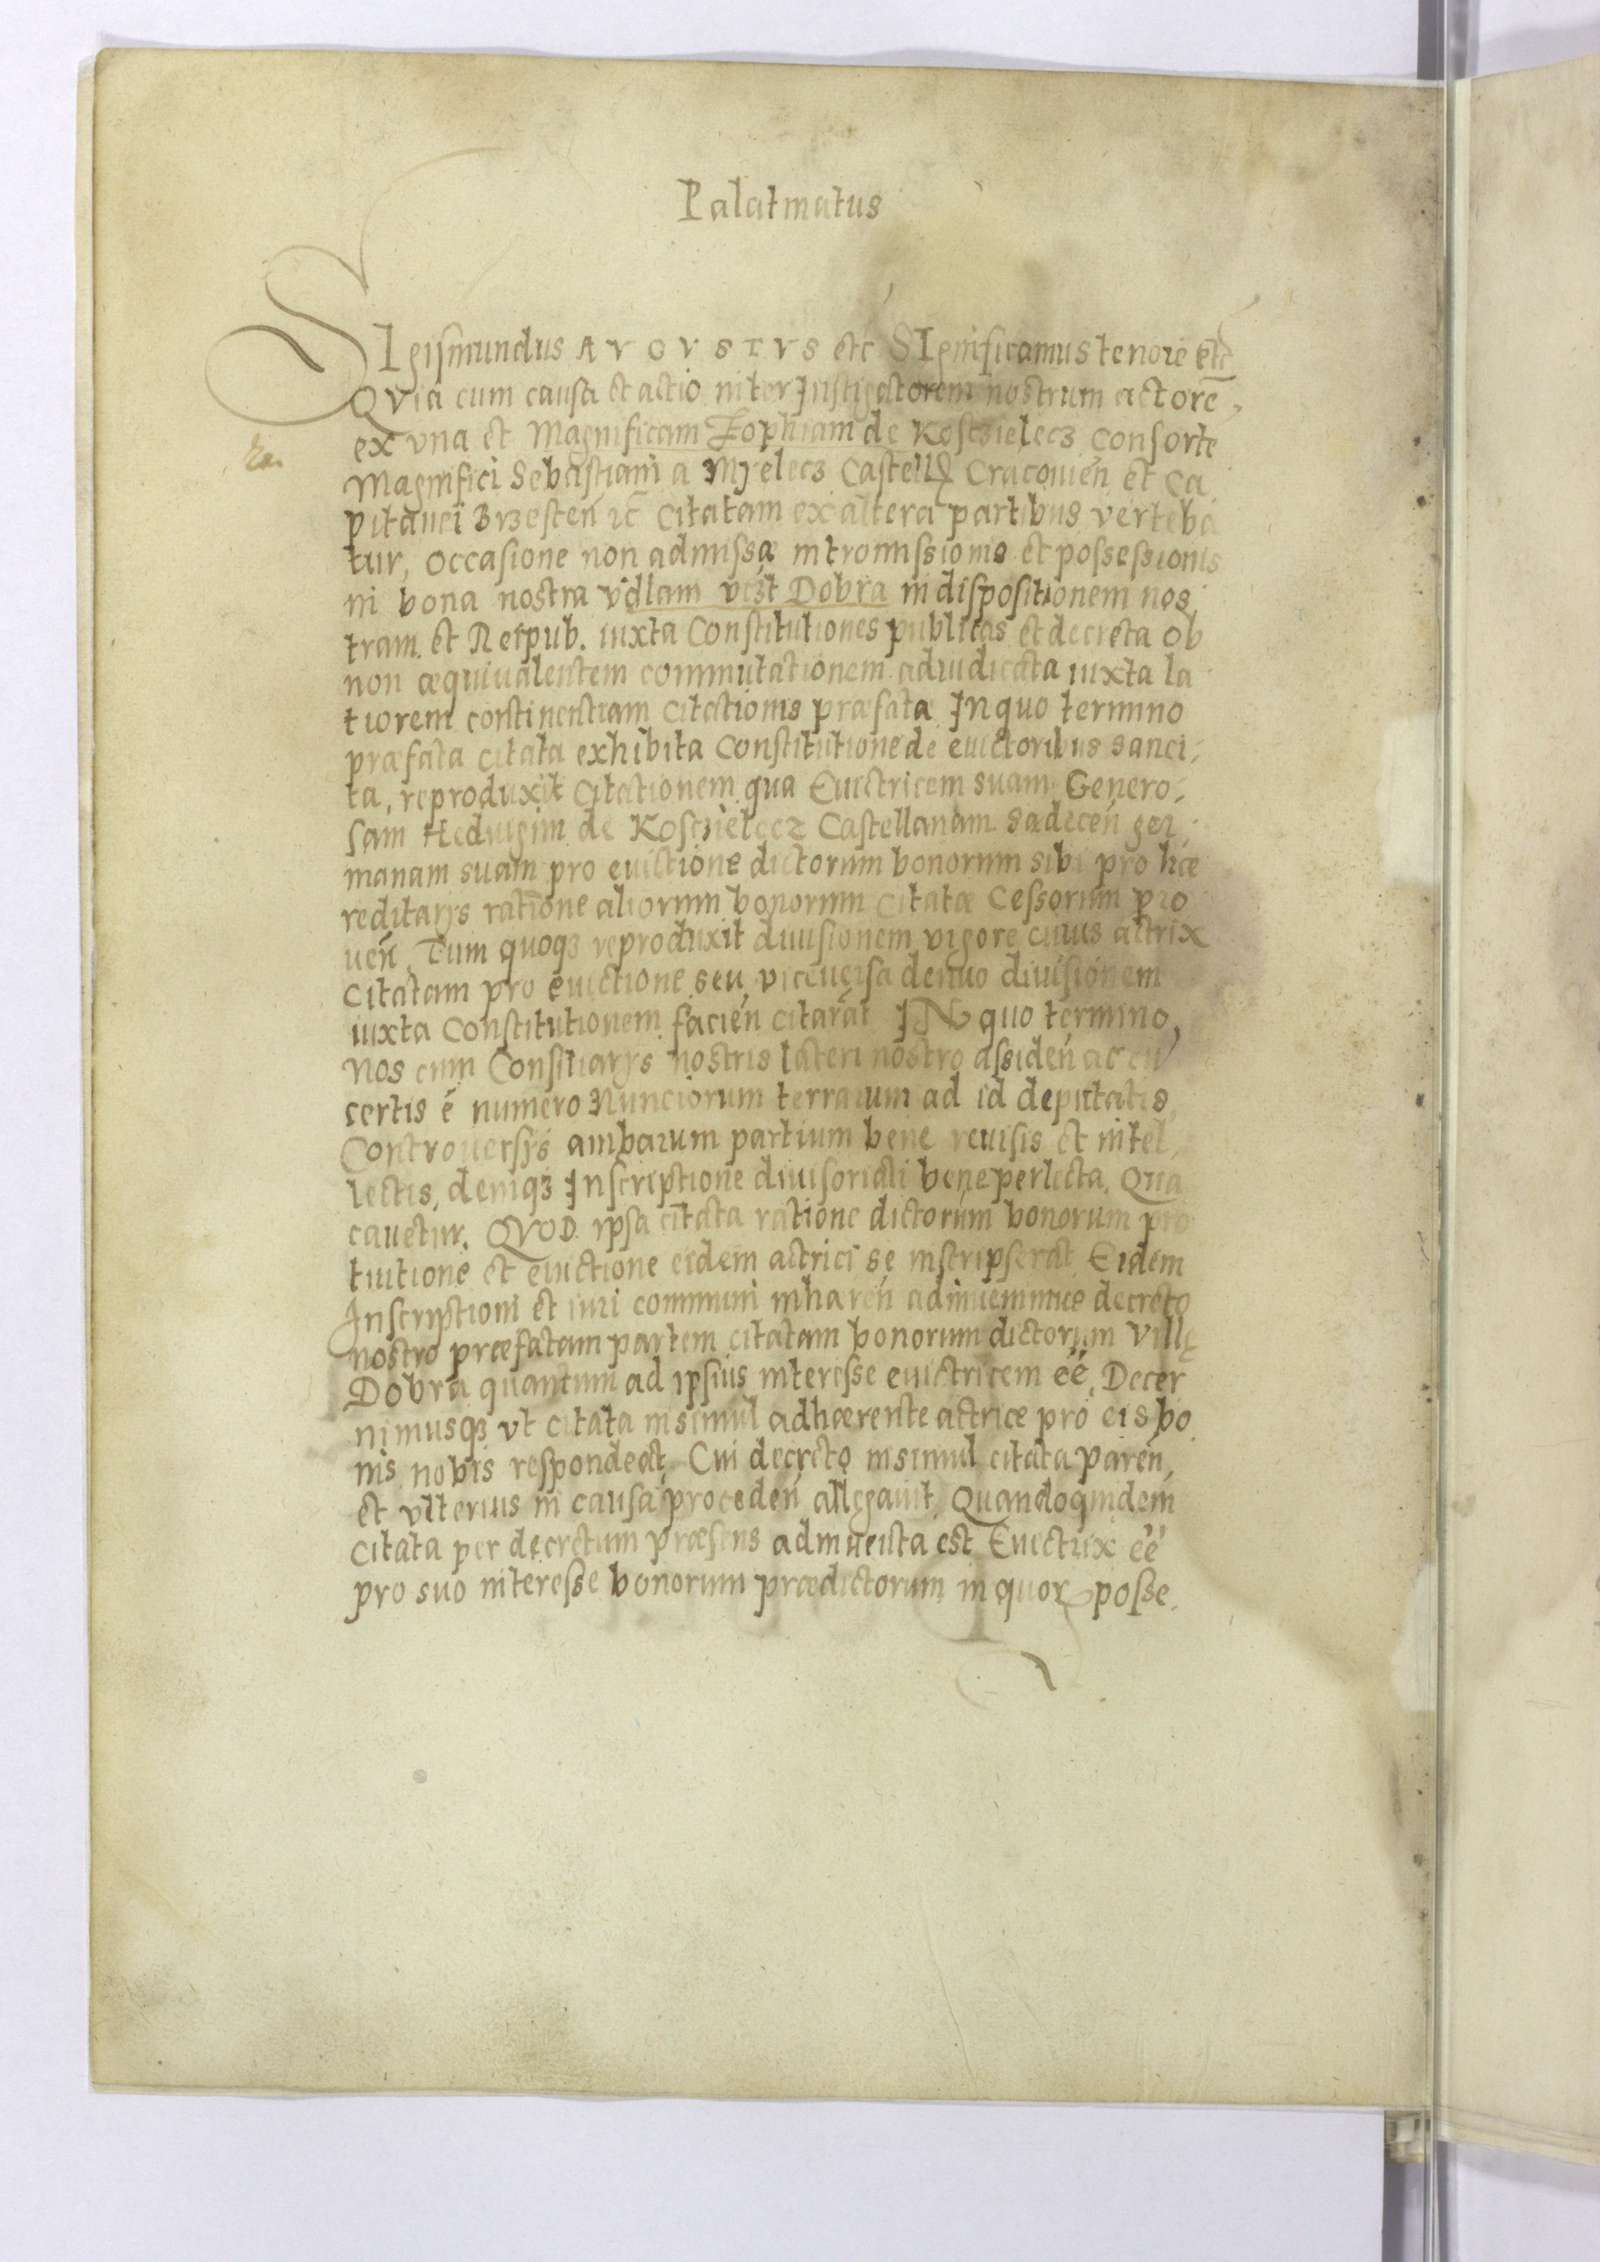 Palatinatus
SIgismundus AVGVSTVS etc SIgnificamus tenore etc
QVia cum causa et actio inter Instigatorem nostrum actorē,
ex vna et Magnificam Zophiam de Kosczielecz Consortē
Magnifici Sebastiani a Myelecz Castell Cracouień et Ca
pitanei Brzesteń Citatam ex altera partibus verteba
tur, Occasione non admissæ intromissionis et possessionis
in bona nostra Dobra in dispositionem nos,
tram et Reipub. iuxta Constitutiones publicas et decreta ob
non æquiualentem commutationem adiudicata iuxta la
tiorem continentiam Citationis præfatæ In quo termino
præfata citata exhibita Constitutione de euictoribus sanci,
ta, reproduxit Citationem qua Euictricem suam Genero,
sam Heduigim de Kosczielecz Castellanam Sadeceń ger,
manam suam pro euictione dictorum bonorum sibi pro hæ
reditarijs ratione aliorum bonorum Citatæ Cessorum pro
ueń, Tum quoqȝ reproduxit diuisionem vigore cuius actrix
Citatam pro euictione seu viceuersa denuo diuisionem
iuxta Constitutionem facień citarat IN quo termino,
Nos cum Consiliarijs nostris lateri nostro assideń ac cū
certis é numero Nunciorum terrarum ad id deputatis,
Controuersijs ambarum partium bene reuisis et intel,
lectis, deniqȝ Inscriptione diuisoriali bene perlecta, Qua
cauetur. QVOD ipsa citata ratione dictorum bonorum pro
tuitione et euictione eidem actrici se inscripserat Eidem
Inscriptioni et iuri communi inhæreń adinuenimus decreto
nostro præfatam partem citatam bonorum dictorum Villę
Dobra quantum ad ipsius interesse euictricem eé, Decer
nimusqȝ vt citata insimul adhærente actrice pro eis bo
nis nobis respondeat, Cui decreto insimul citata pareń,
et vlterius in causa procedeń allegauit, Quandoquidem
citata per decretum præsens adinuenta est Euictrix eé
pro suo interesse bonorum prædictorum in quor posse,